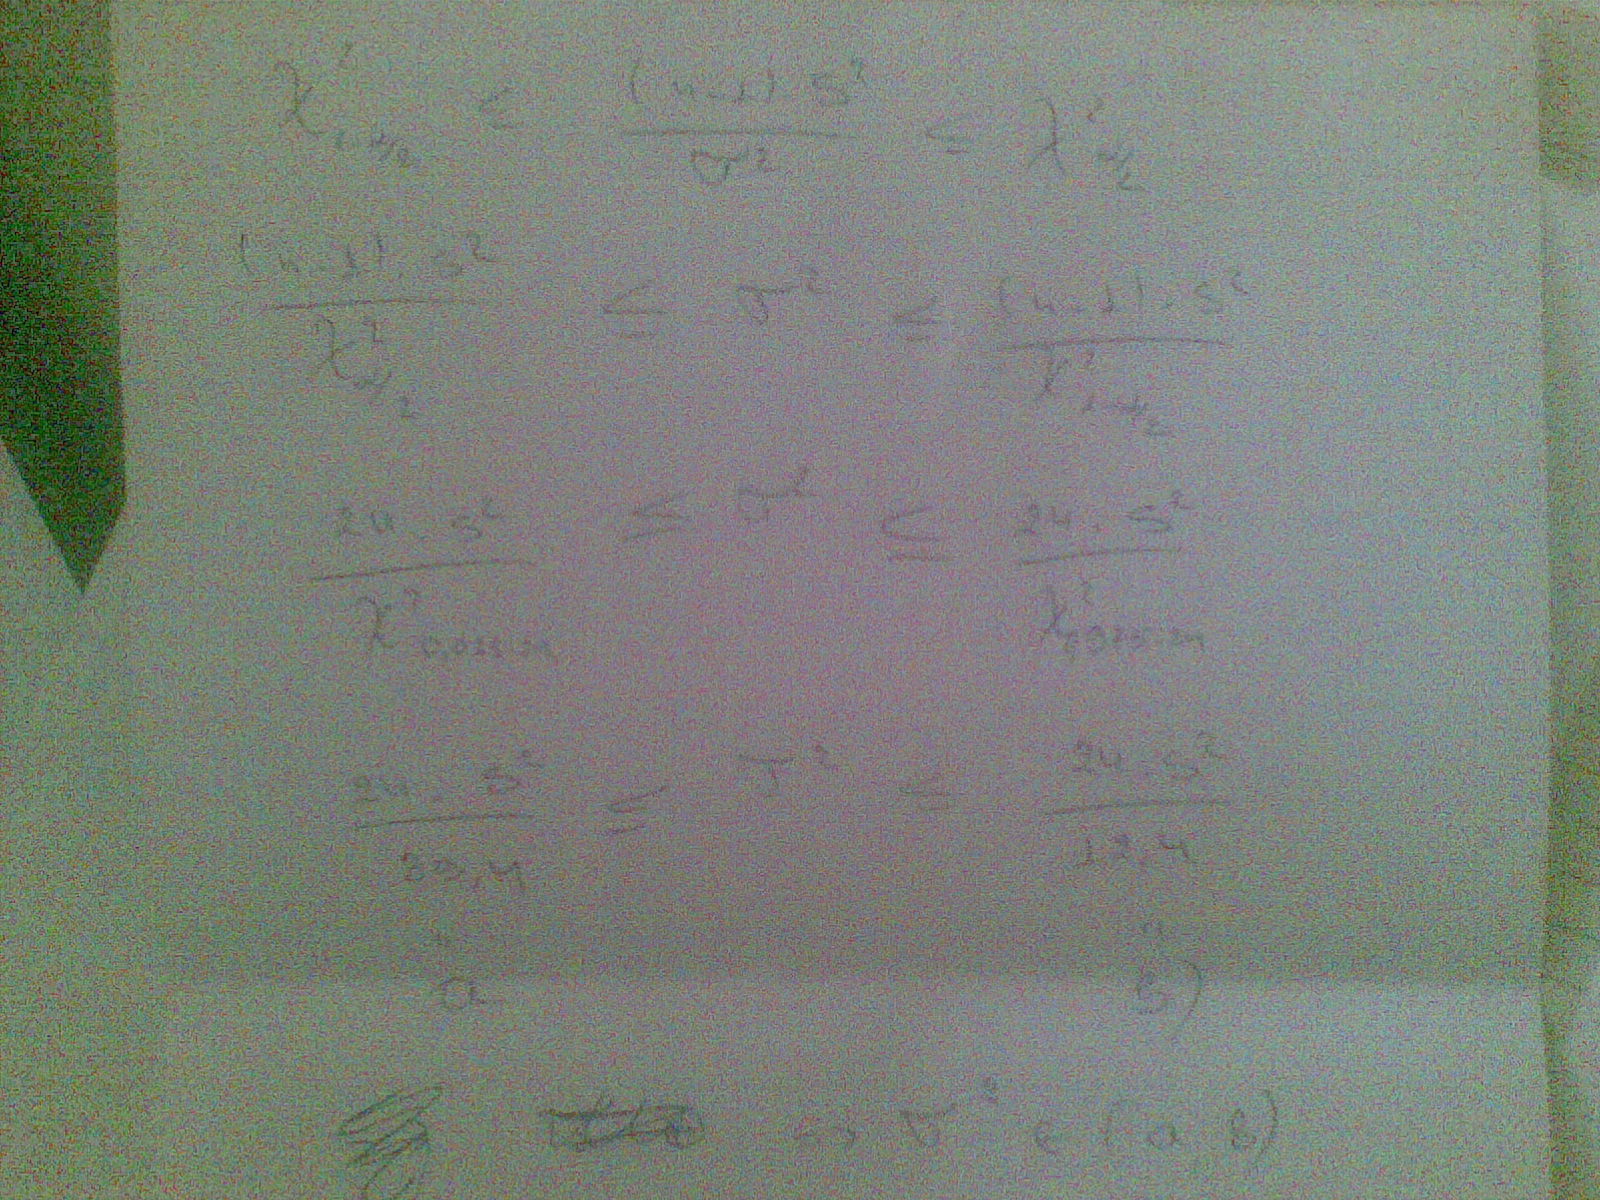 χ²₁₋α/₂ ≤ (n-1) S² / σ² ≤ χ²α/₂
(n-1) · S² / χ²α/₂ ≤ σ² ≤ (n-1) · S² / χ²₁₋α/₂
24 · S² / χ² ≤ σ² ≤ 24 · S² / χ²
24 · S² / 39,4 ≤ σ² ≤ 24 · S² / 12,4
a b)
σ² ∈ (a, b)